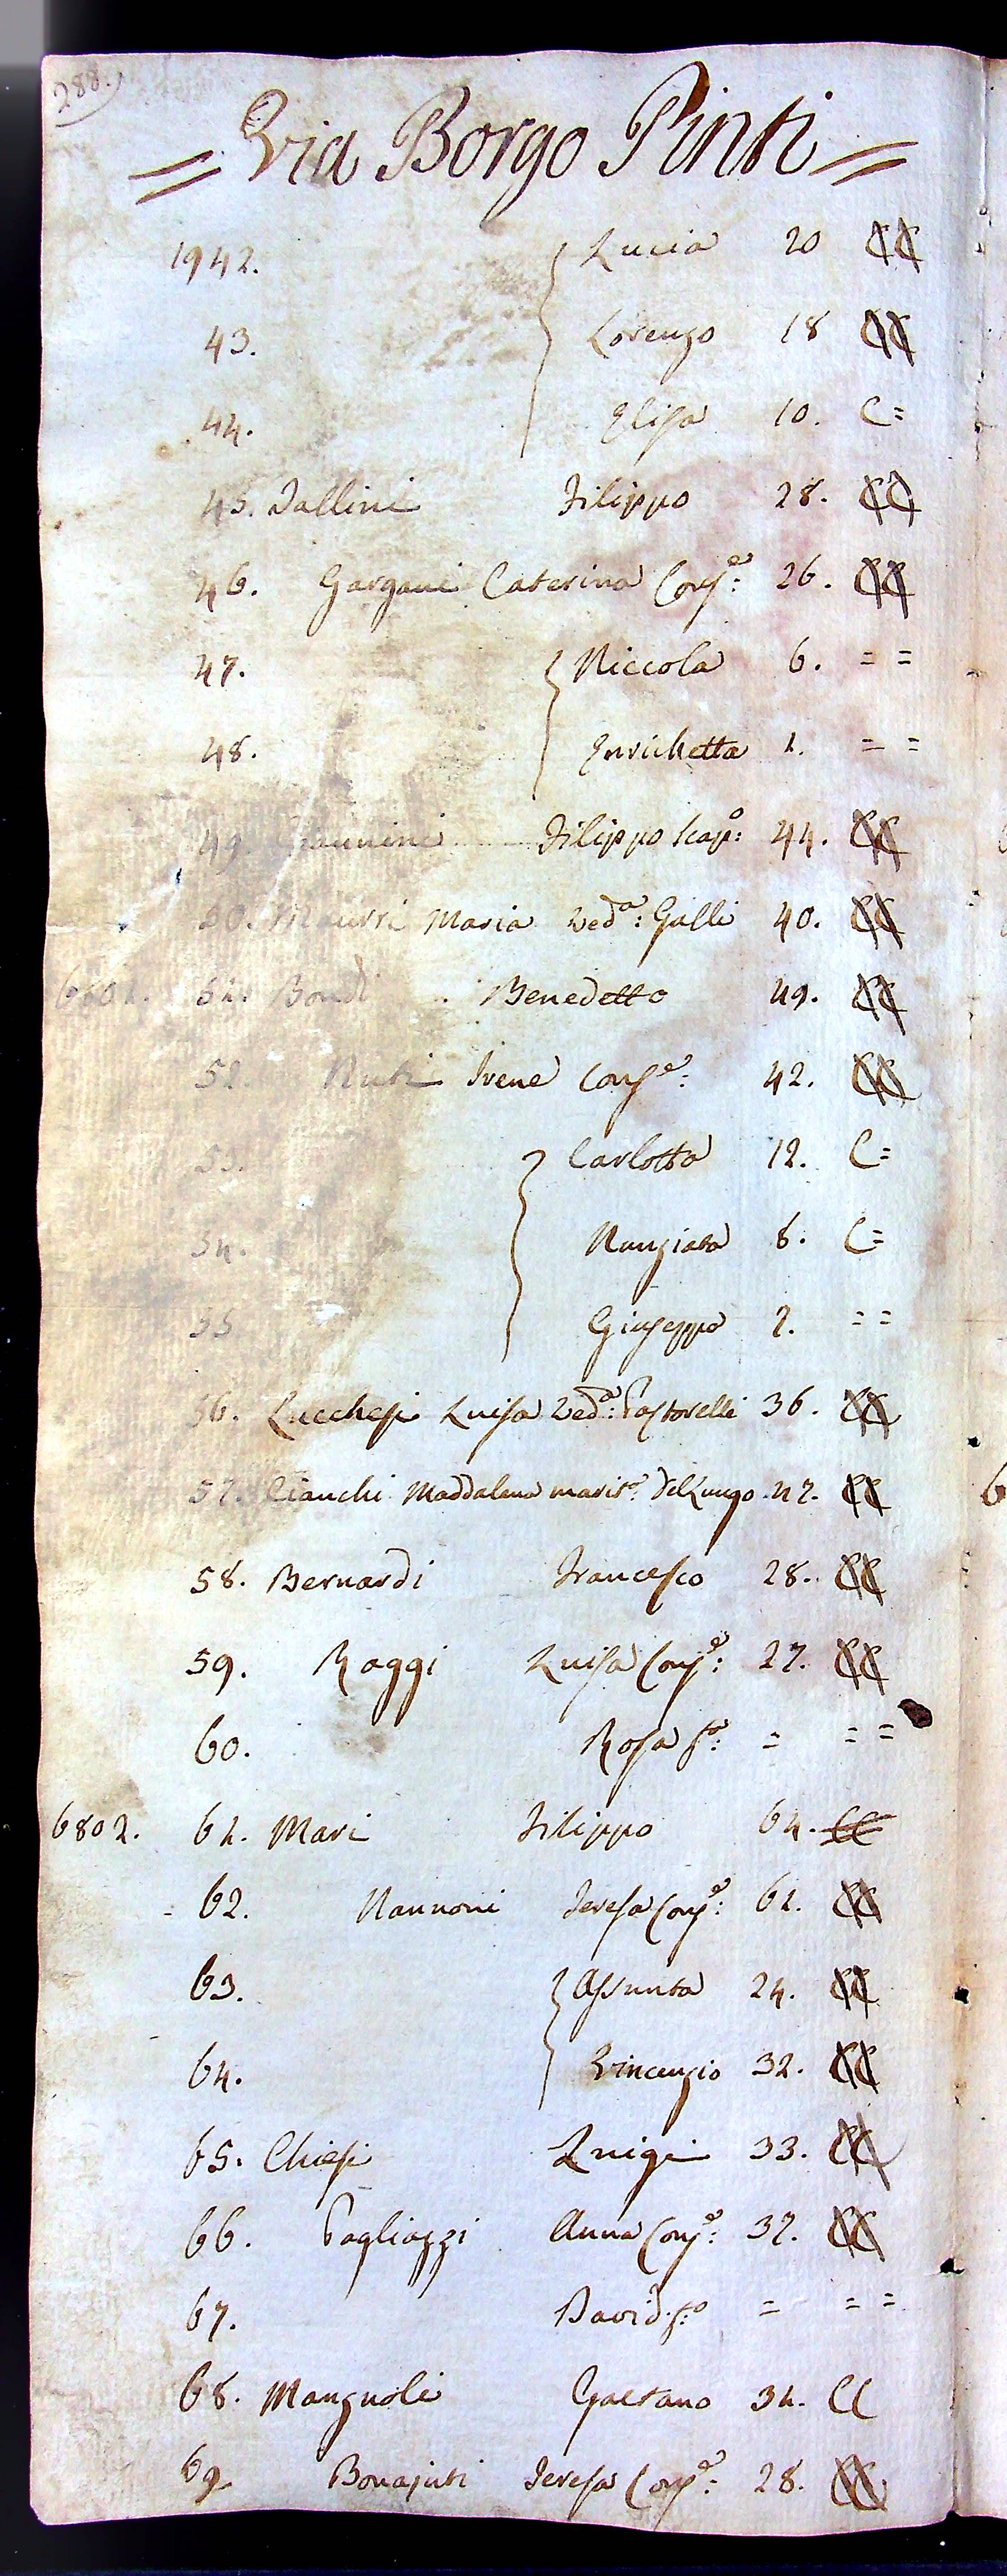 288.
= Via Borgo Pinti =
1942. Lucia 20 CC
43. Lorenzo 18 CC
44. Elisa 10. C=
45. Dallini Filippo 28. CC
46. Gargani Caterina Conj.e: 26. CC
47. Niccola 6. = =
48. Enrichetta 1. = =
49. Giannini Filippo Scap.o: 44. CC
50. Maurri Maria Ved.a: Galli 40. CC
51. Bondi Benedetto 49. CC
52. Nuti Irene Conj.e: 42. CC
53. Carlotta 12. C=
54. Nunziata 8. C=
55 Giuseppe 2. = =
56. Lucchesi Luisa Ved.a: Pastorelli 36. CC
57. Cianchi Maddalena marit.a Del Lungo 47. CC
58. Bernardi Francesco 28. CC
59. Raggi Luisa Conj.e: 27. CC
60. Rosa f.a: = = =
6802. 61. Mari Filippo 64. CC
62. Nannoni Teresa Conj.e: 61. CC
63. Assunta 24. CC
64. Vincenzio 32. CC
65. Chiesi Luigi 33. CC
66. Pagliazzi Anna Conj.e: 37. CC
67. David f.o = = =
68. Mangnoli Gaetano 31. CC
69 Bonajuti Teresa Conj.e: 28. CC